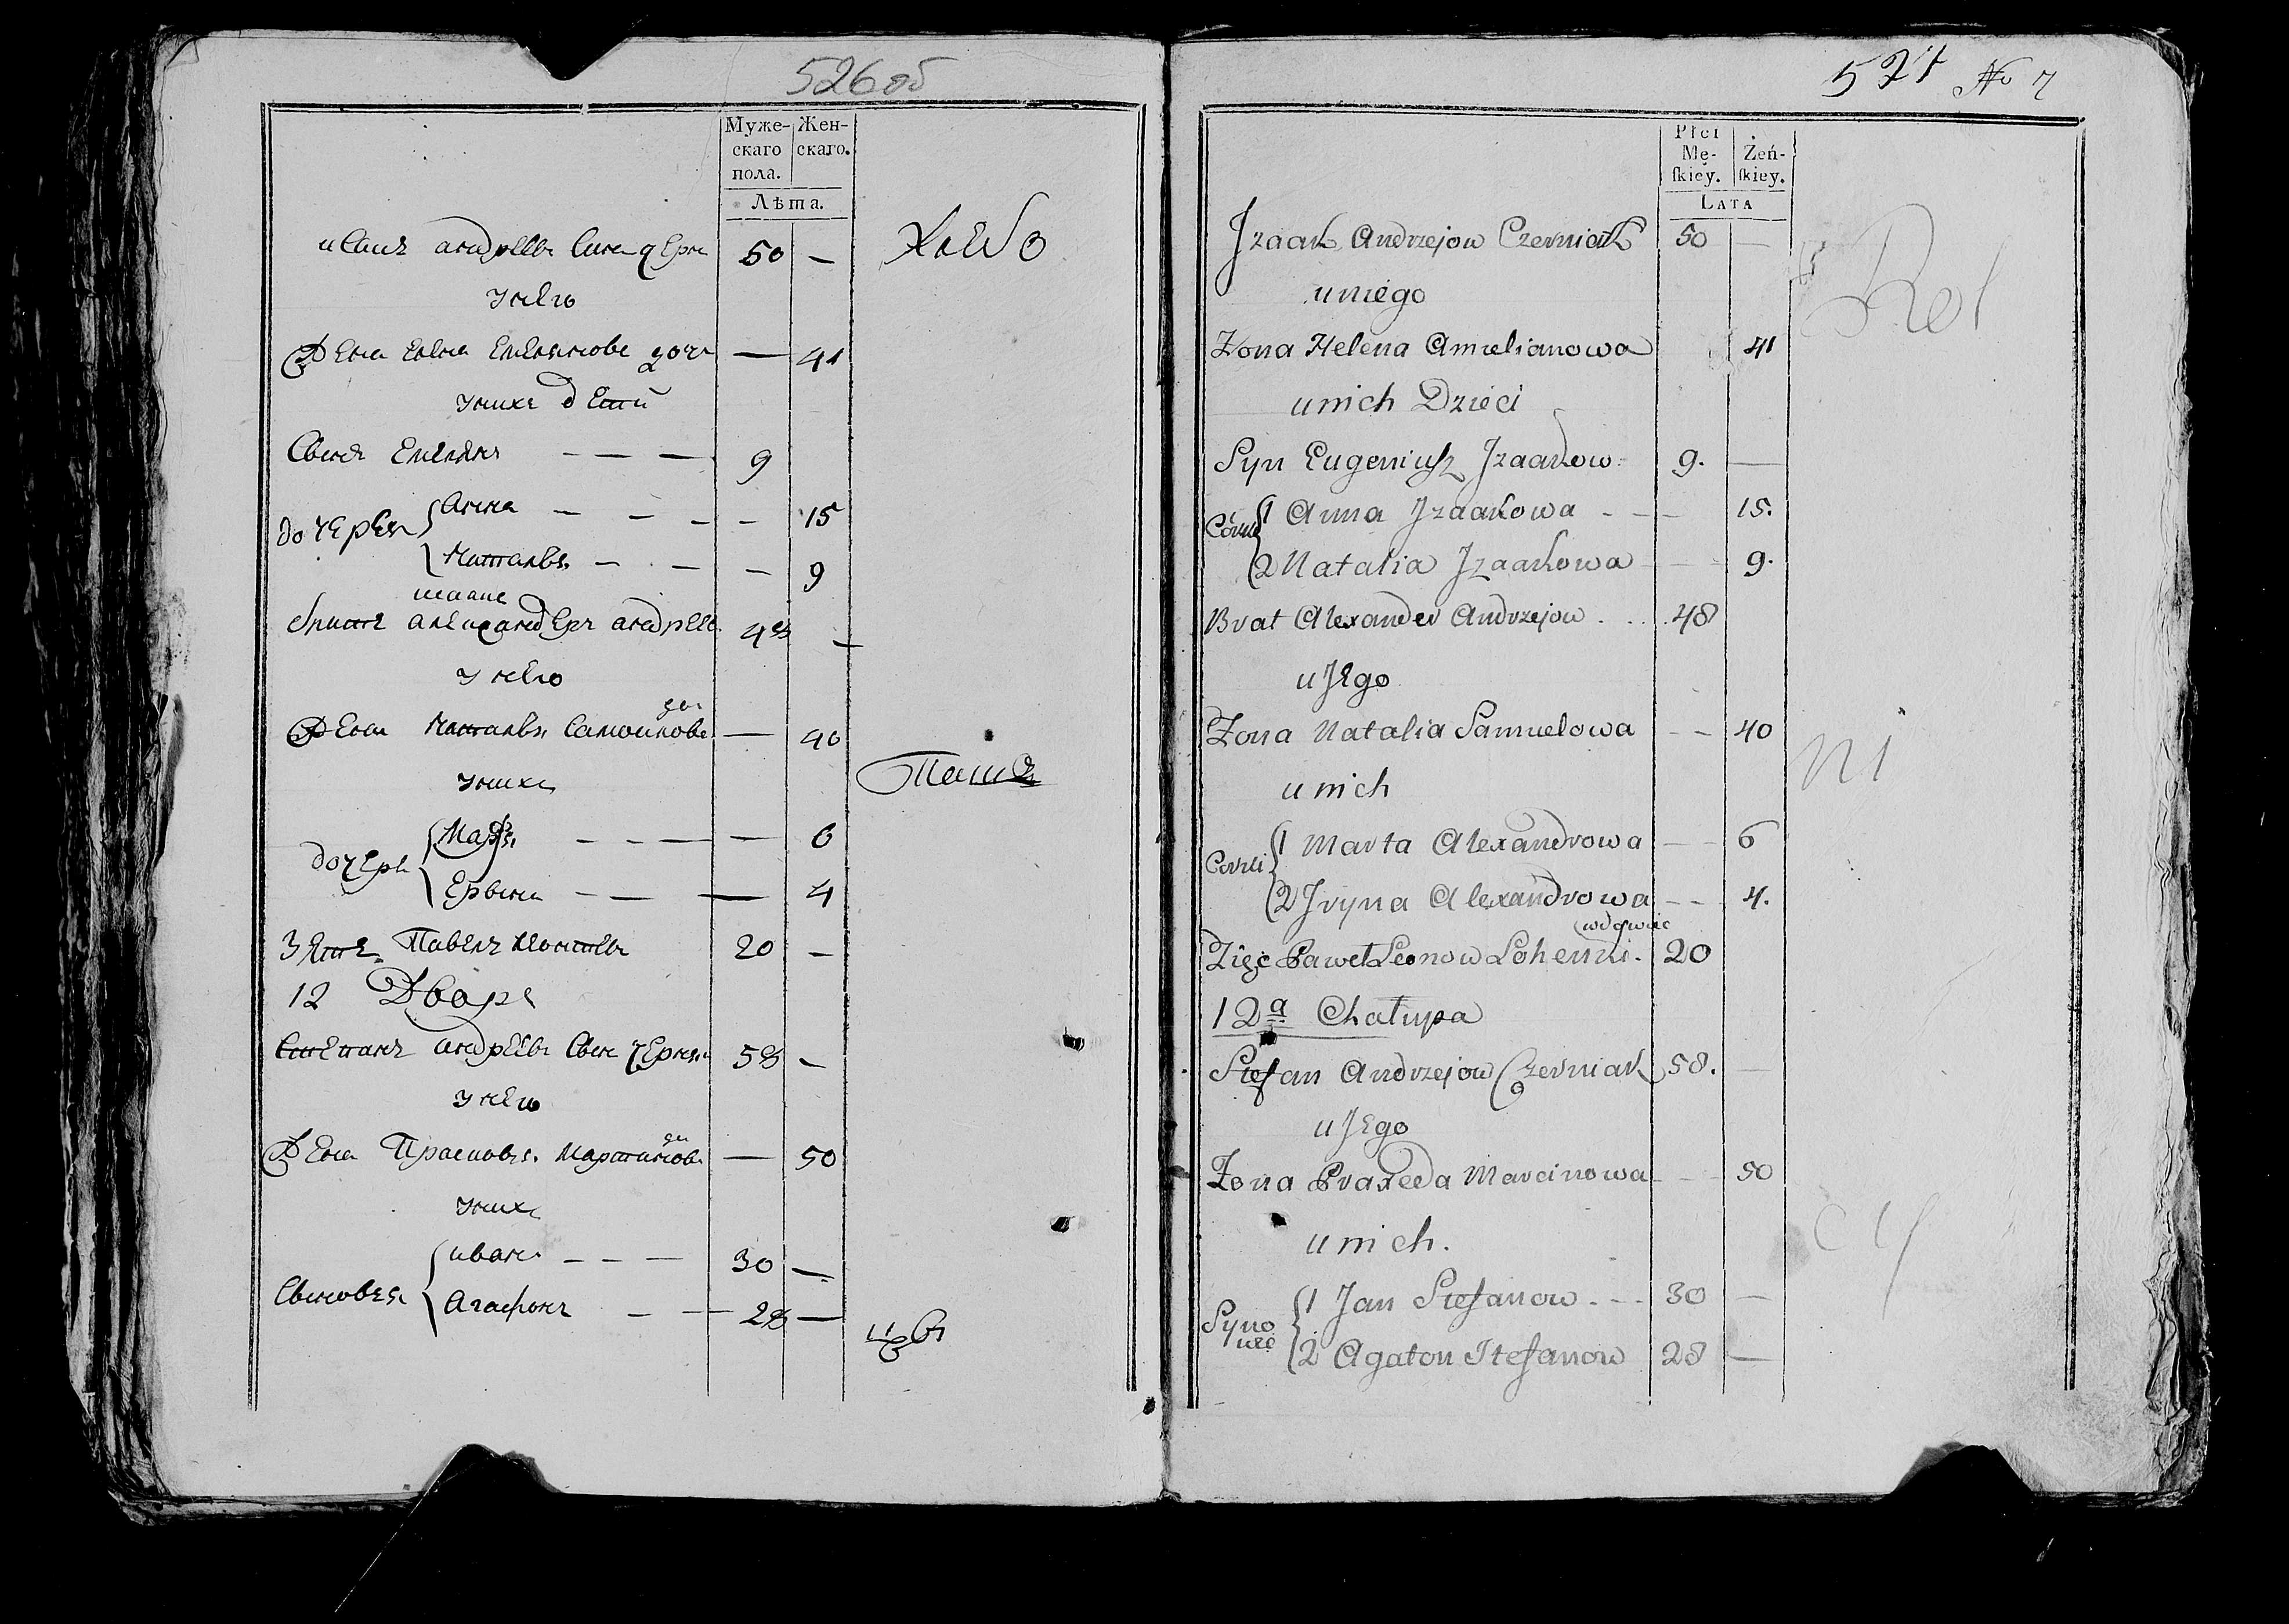 526 об
Муже-
скаго
пола.
Жен-
скаго.
Лѣта.
50 —
Хлебо
унего
Жена Елена Емелянова доч — 41
унихъ дети
Сынъ Емелянъ — — — 9
дочери
Анна — — — — 15
Наталья — — — — 9
Братъ александеръ андреевъ 48 —
унего
Жена Наталья Самойлова доч — 40
унихъ
Паше
дочери
Марфа — — — — 6
Ерына — — — 4
Зять Павелъ 20 —
12 Дворъ
Степанъ андреевъ Сынъ Черняк 58 —
унего
Жена Прасковья Мартинова до — 50
унихъ
Сыновья
иванъ — — — 30 —
Агафонъ — — 28 —
цы
527 No 7
Płci
Mę-
ſkiey.
Żeń-
ſkiey.
Lata
Jzaak Andrzejow Czerniak 50 —
uniego
Rol
Zona Helena Amelianowa 41
unich Dzieci
Syn Eugeniusz Jzaakow 9. —
Córki
1 Anna Jzaakowa - - - 15.
2 Natalia Jzaakowa - - 9.
Brat Alexander Andrzejow . . . 48
uJego
Zona Natalia Samuelowa - - 40
ni
unich
Corki
1 Marta Alexandrowa - - 6
2 Jryna Alexandrowa - - 4.
Zięć Paweł Leonow 20
12a Chałupa
Stefan Andrzejow Czerniak 58. —
uJego
Zona Praxeda Marcinowa - - 50
unich.
cy
Syno
wie
1 Jan Stefanow - - - 30 —
2 Agaton Stefanow 28 —